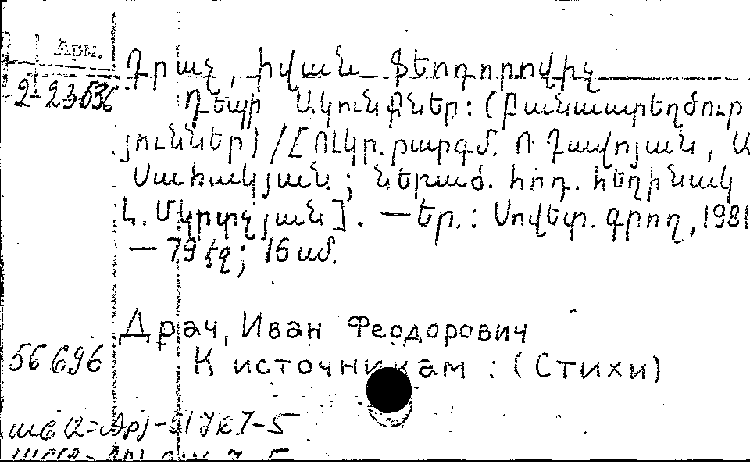 Арм.
Դրաչ, Իվան Ֆեոդորովիչ
2-23636
Դեպի Ակունքներ: (Բանաստեղծուր
յուններ) / [Ուկր. թարգմ. Ռ. Դավոյան, Ա
Սահակյան; Ներած. հոդ. հեղինակ
Լ. Մկրտչյան]. — Եր.: Սովետ. գրող, 1981
— 79 էջ; 16 սմ.
Драч, Иван Феодорович
56696
К источникам : (Стихи)